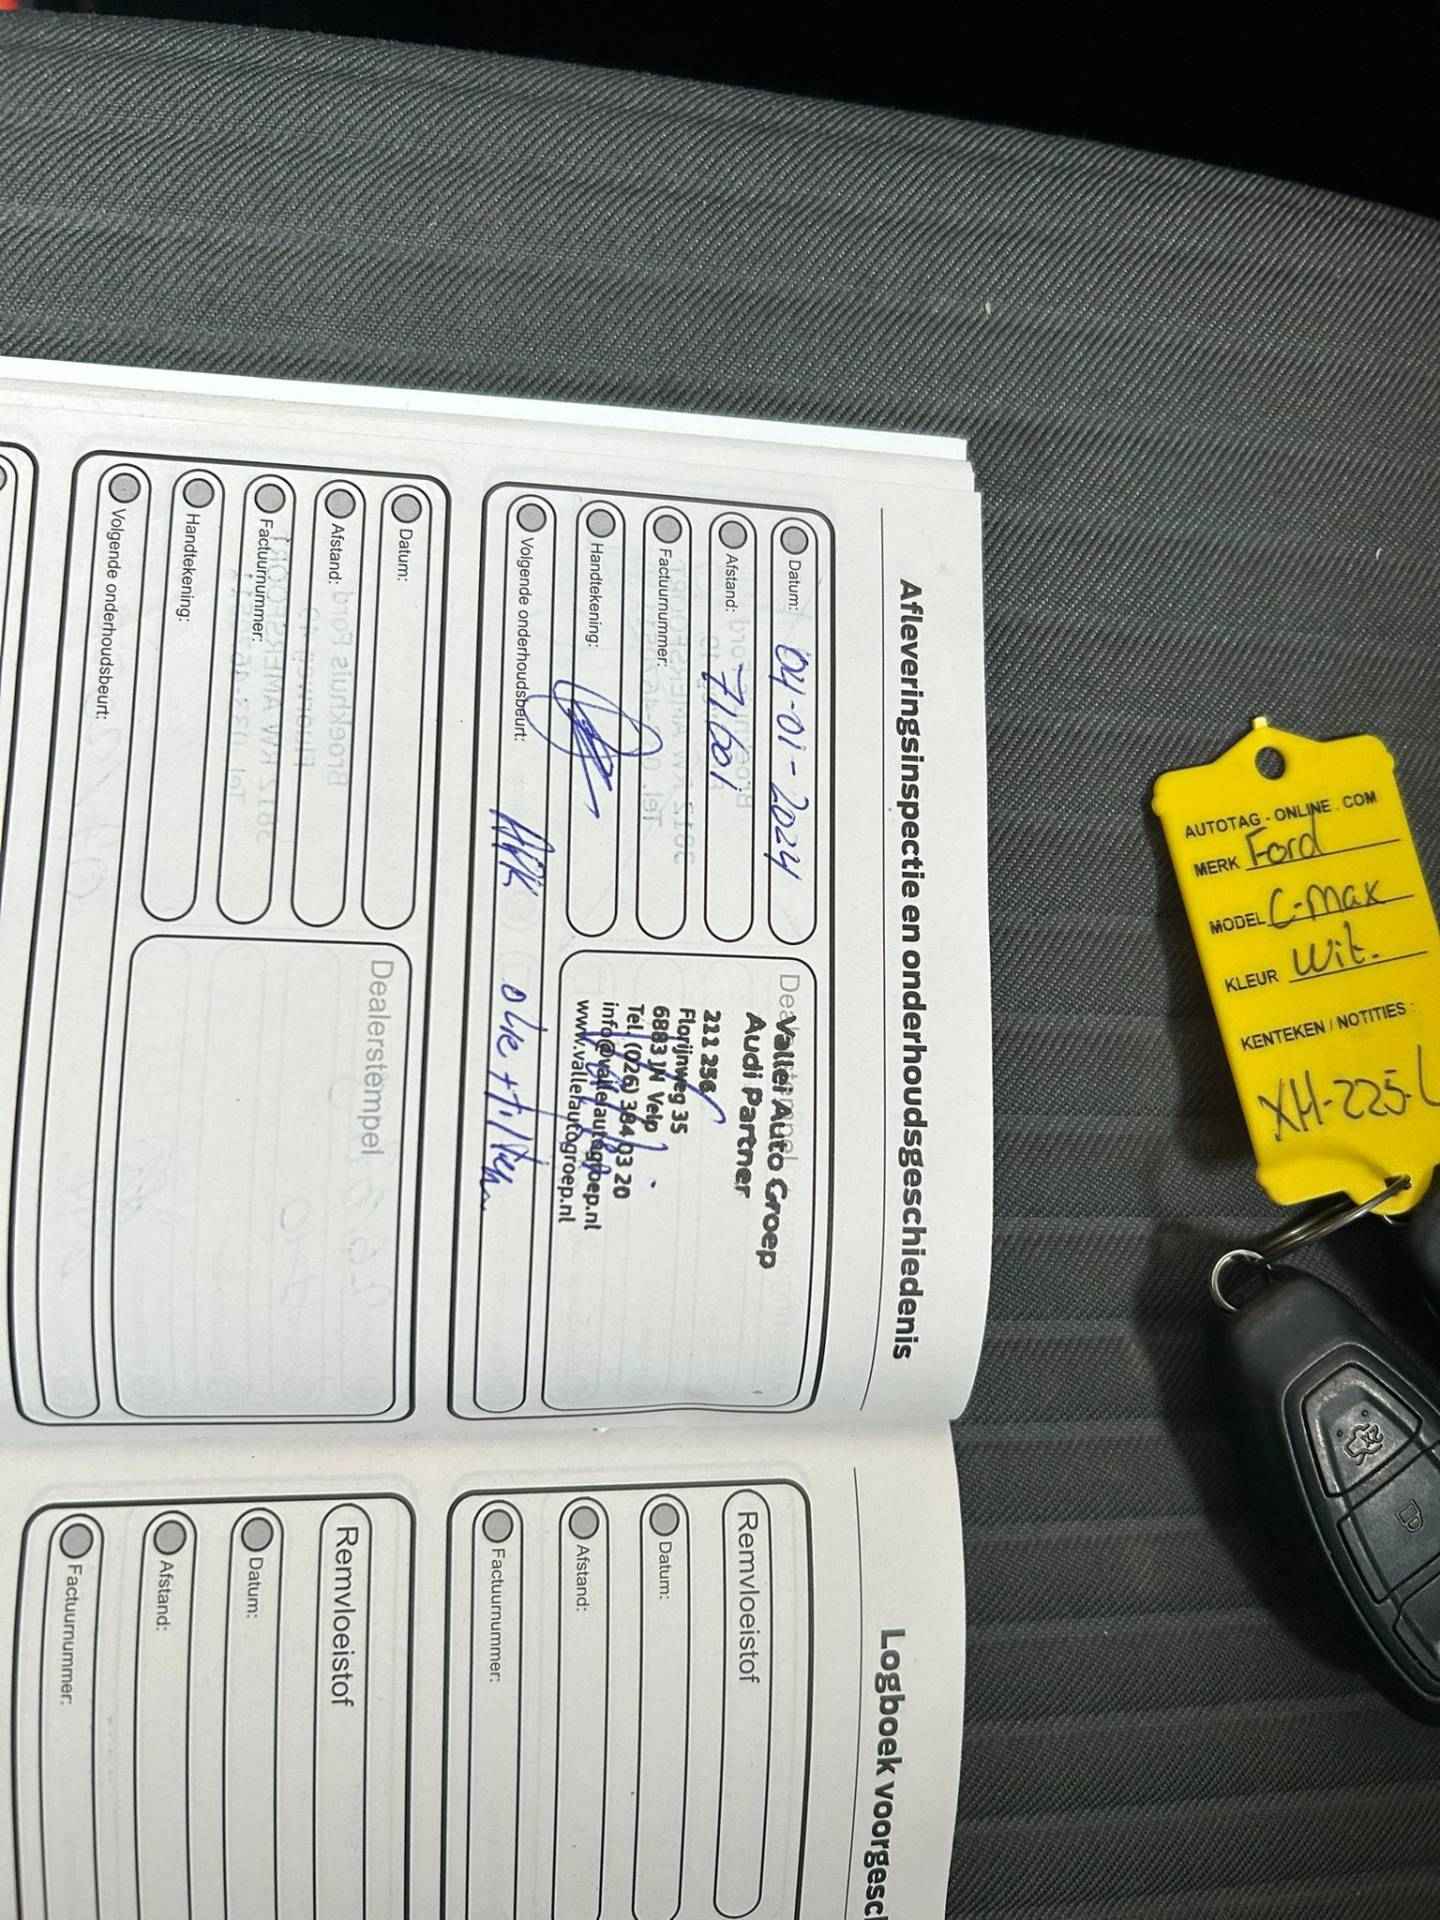 Afleveringsinspectie en onderhoudsgeschiedenis
Datum: 04-01-2024
Afstand: 71601
Factuurnummer:
Handtekening:
Volgende onderhoudsbeurt: APK olie + filter
Vallei Auto Groep
Audi Partner
211 256
Florijnweg 35
6883 JN Velp
Tel. (026) 384 03 20
info@valleiautogroep.nl
www.valleiautogroep.nl
Datum:
Afstand:
Factuurnummer:
Handtekening:
Volgende onderhoudsbeurt:
Dealerstempel
Logboek voorgesc
Remvloeistof
Datum:
Afstand:
Factuurnummer:
Remvloeistof
Datum:
Afstand:
Factuurnummer:
AUTOTAG-ONLINE.COM
MERK Ford
MODEL C-max
KLEUR Wit.
KENTEKEN / NOTITIES:
XH-225-